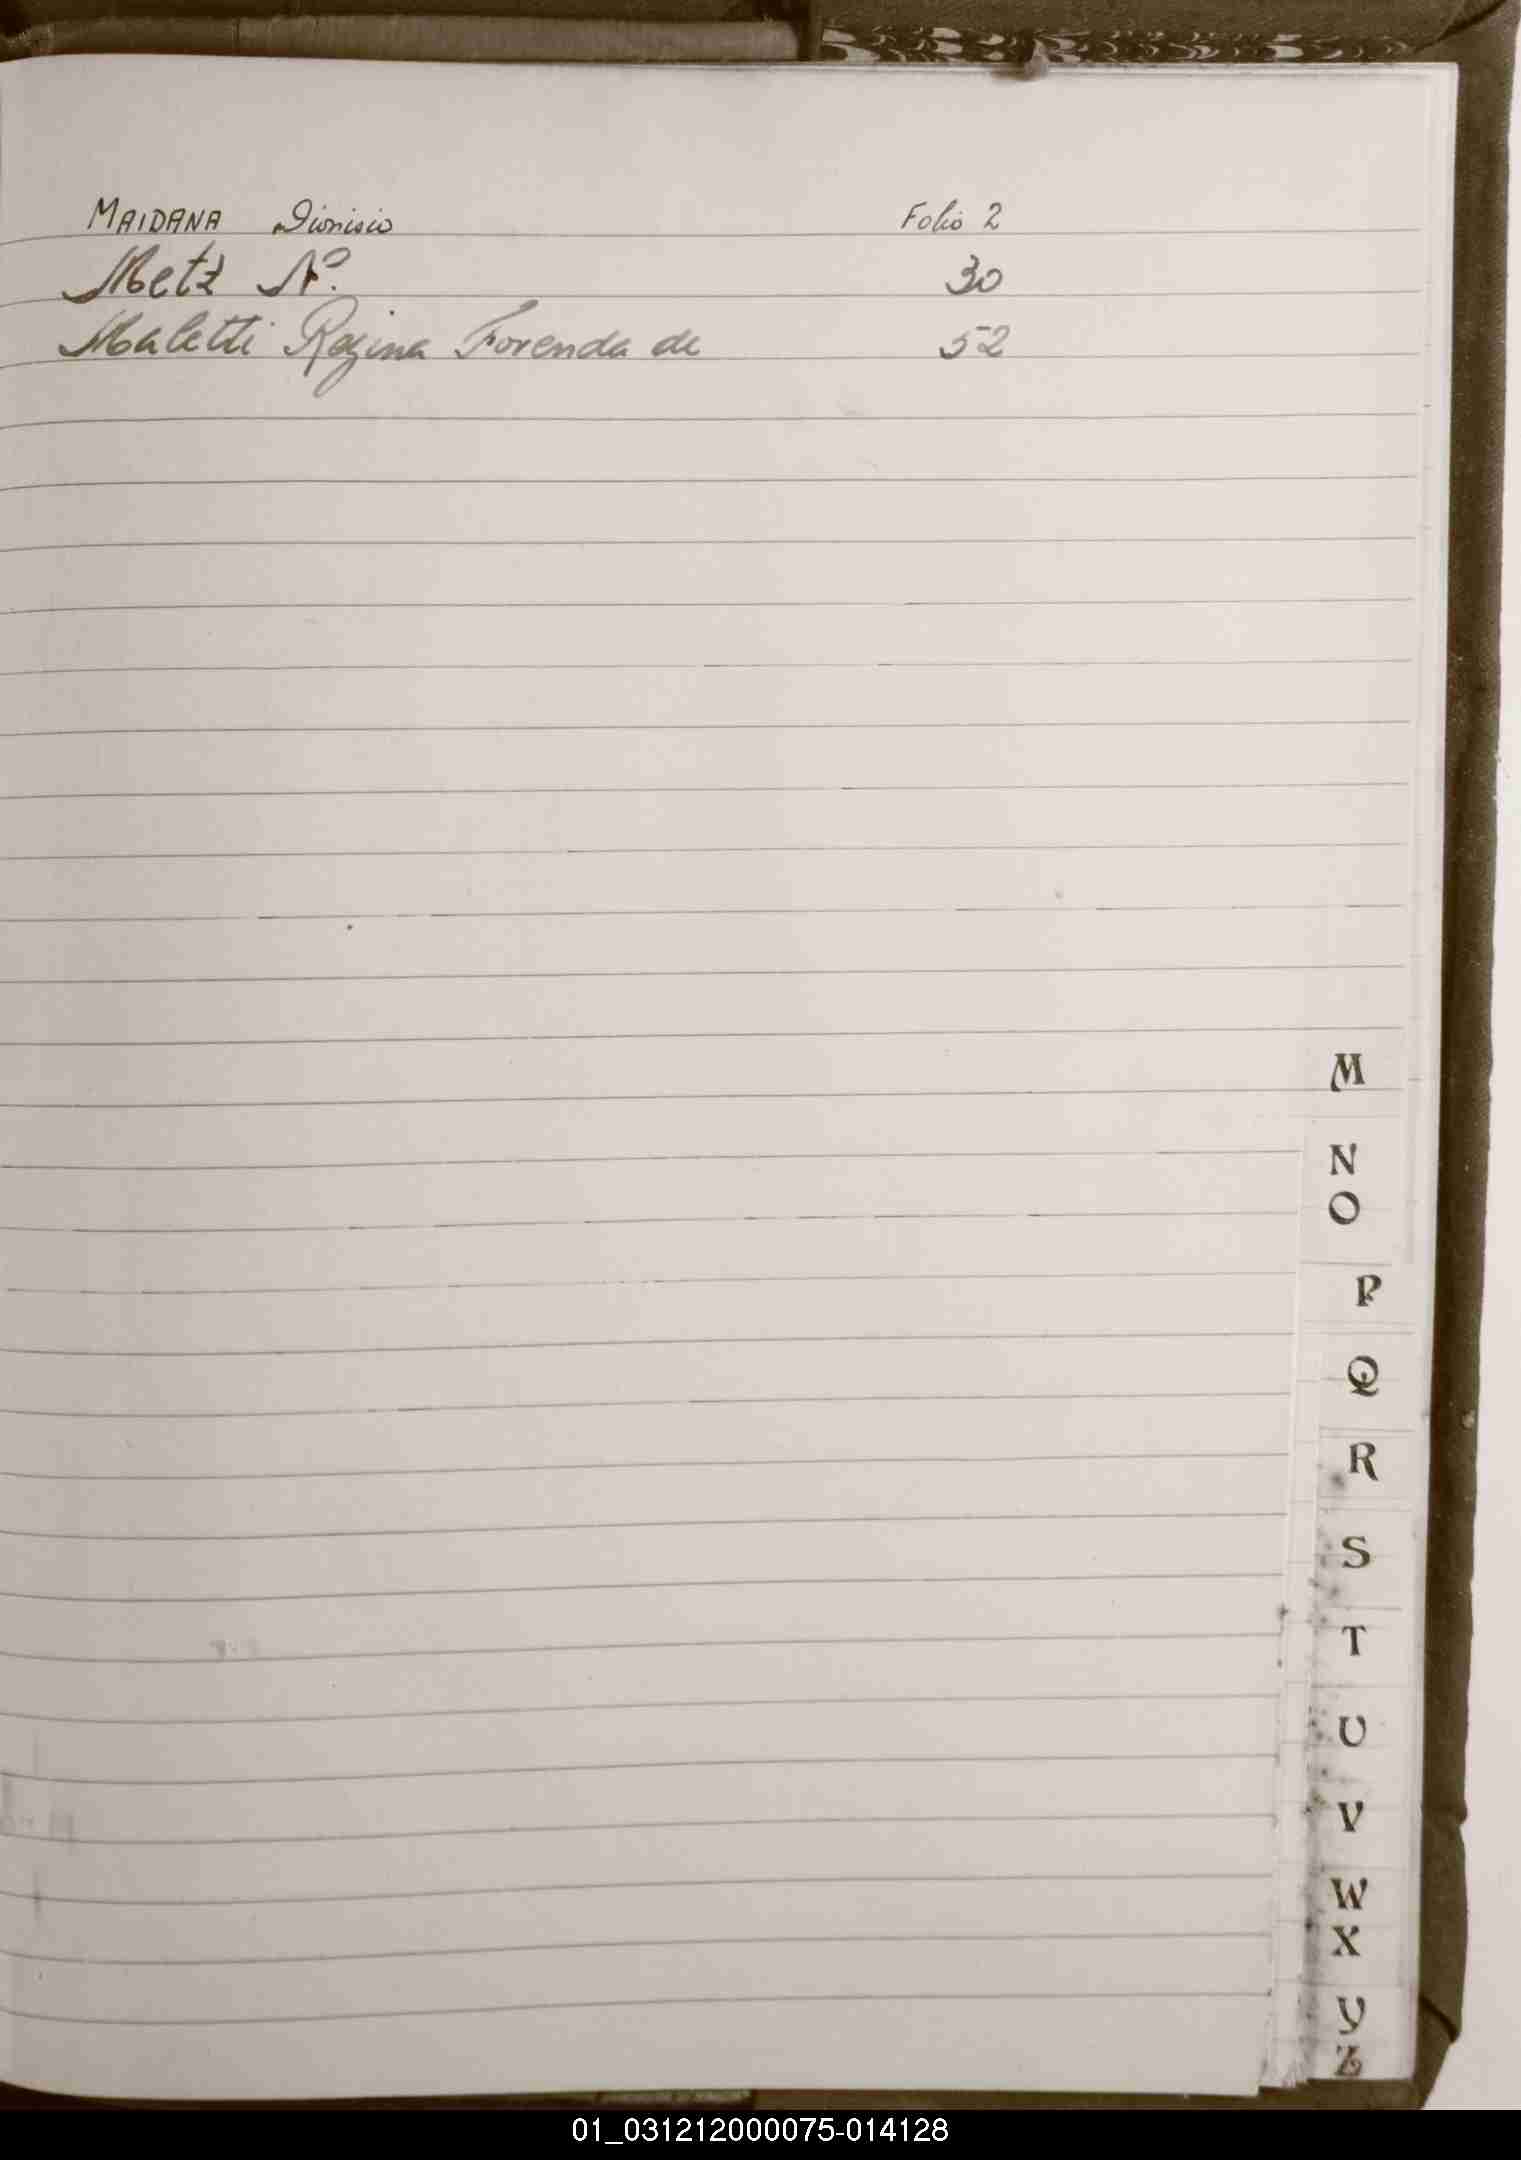 MAIDANA Dionisio Folio 2
Metz N. 30
Maletti Regina Forenda de 52
M
N
O
P
Q
R
S
T
U
V
W
X
Y
Z
01_031212000075-014128